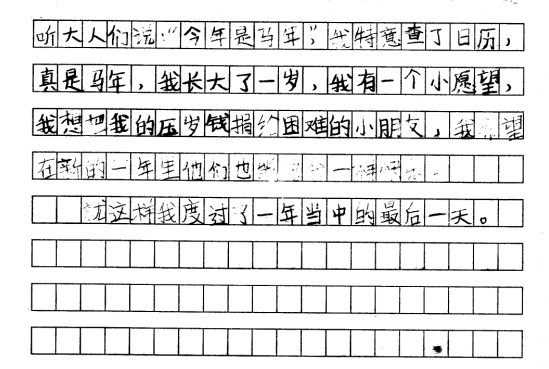 听大人们说:“今年是马年”,我特意查了日历,
真是马年,我长大了一岁,我有一个小愿望,
我想把我的压岁钱捐给困难的小朋友,我希望
在新的一年里他们也一样
就这样我度过了一年当中的最后一天。